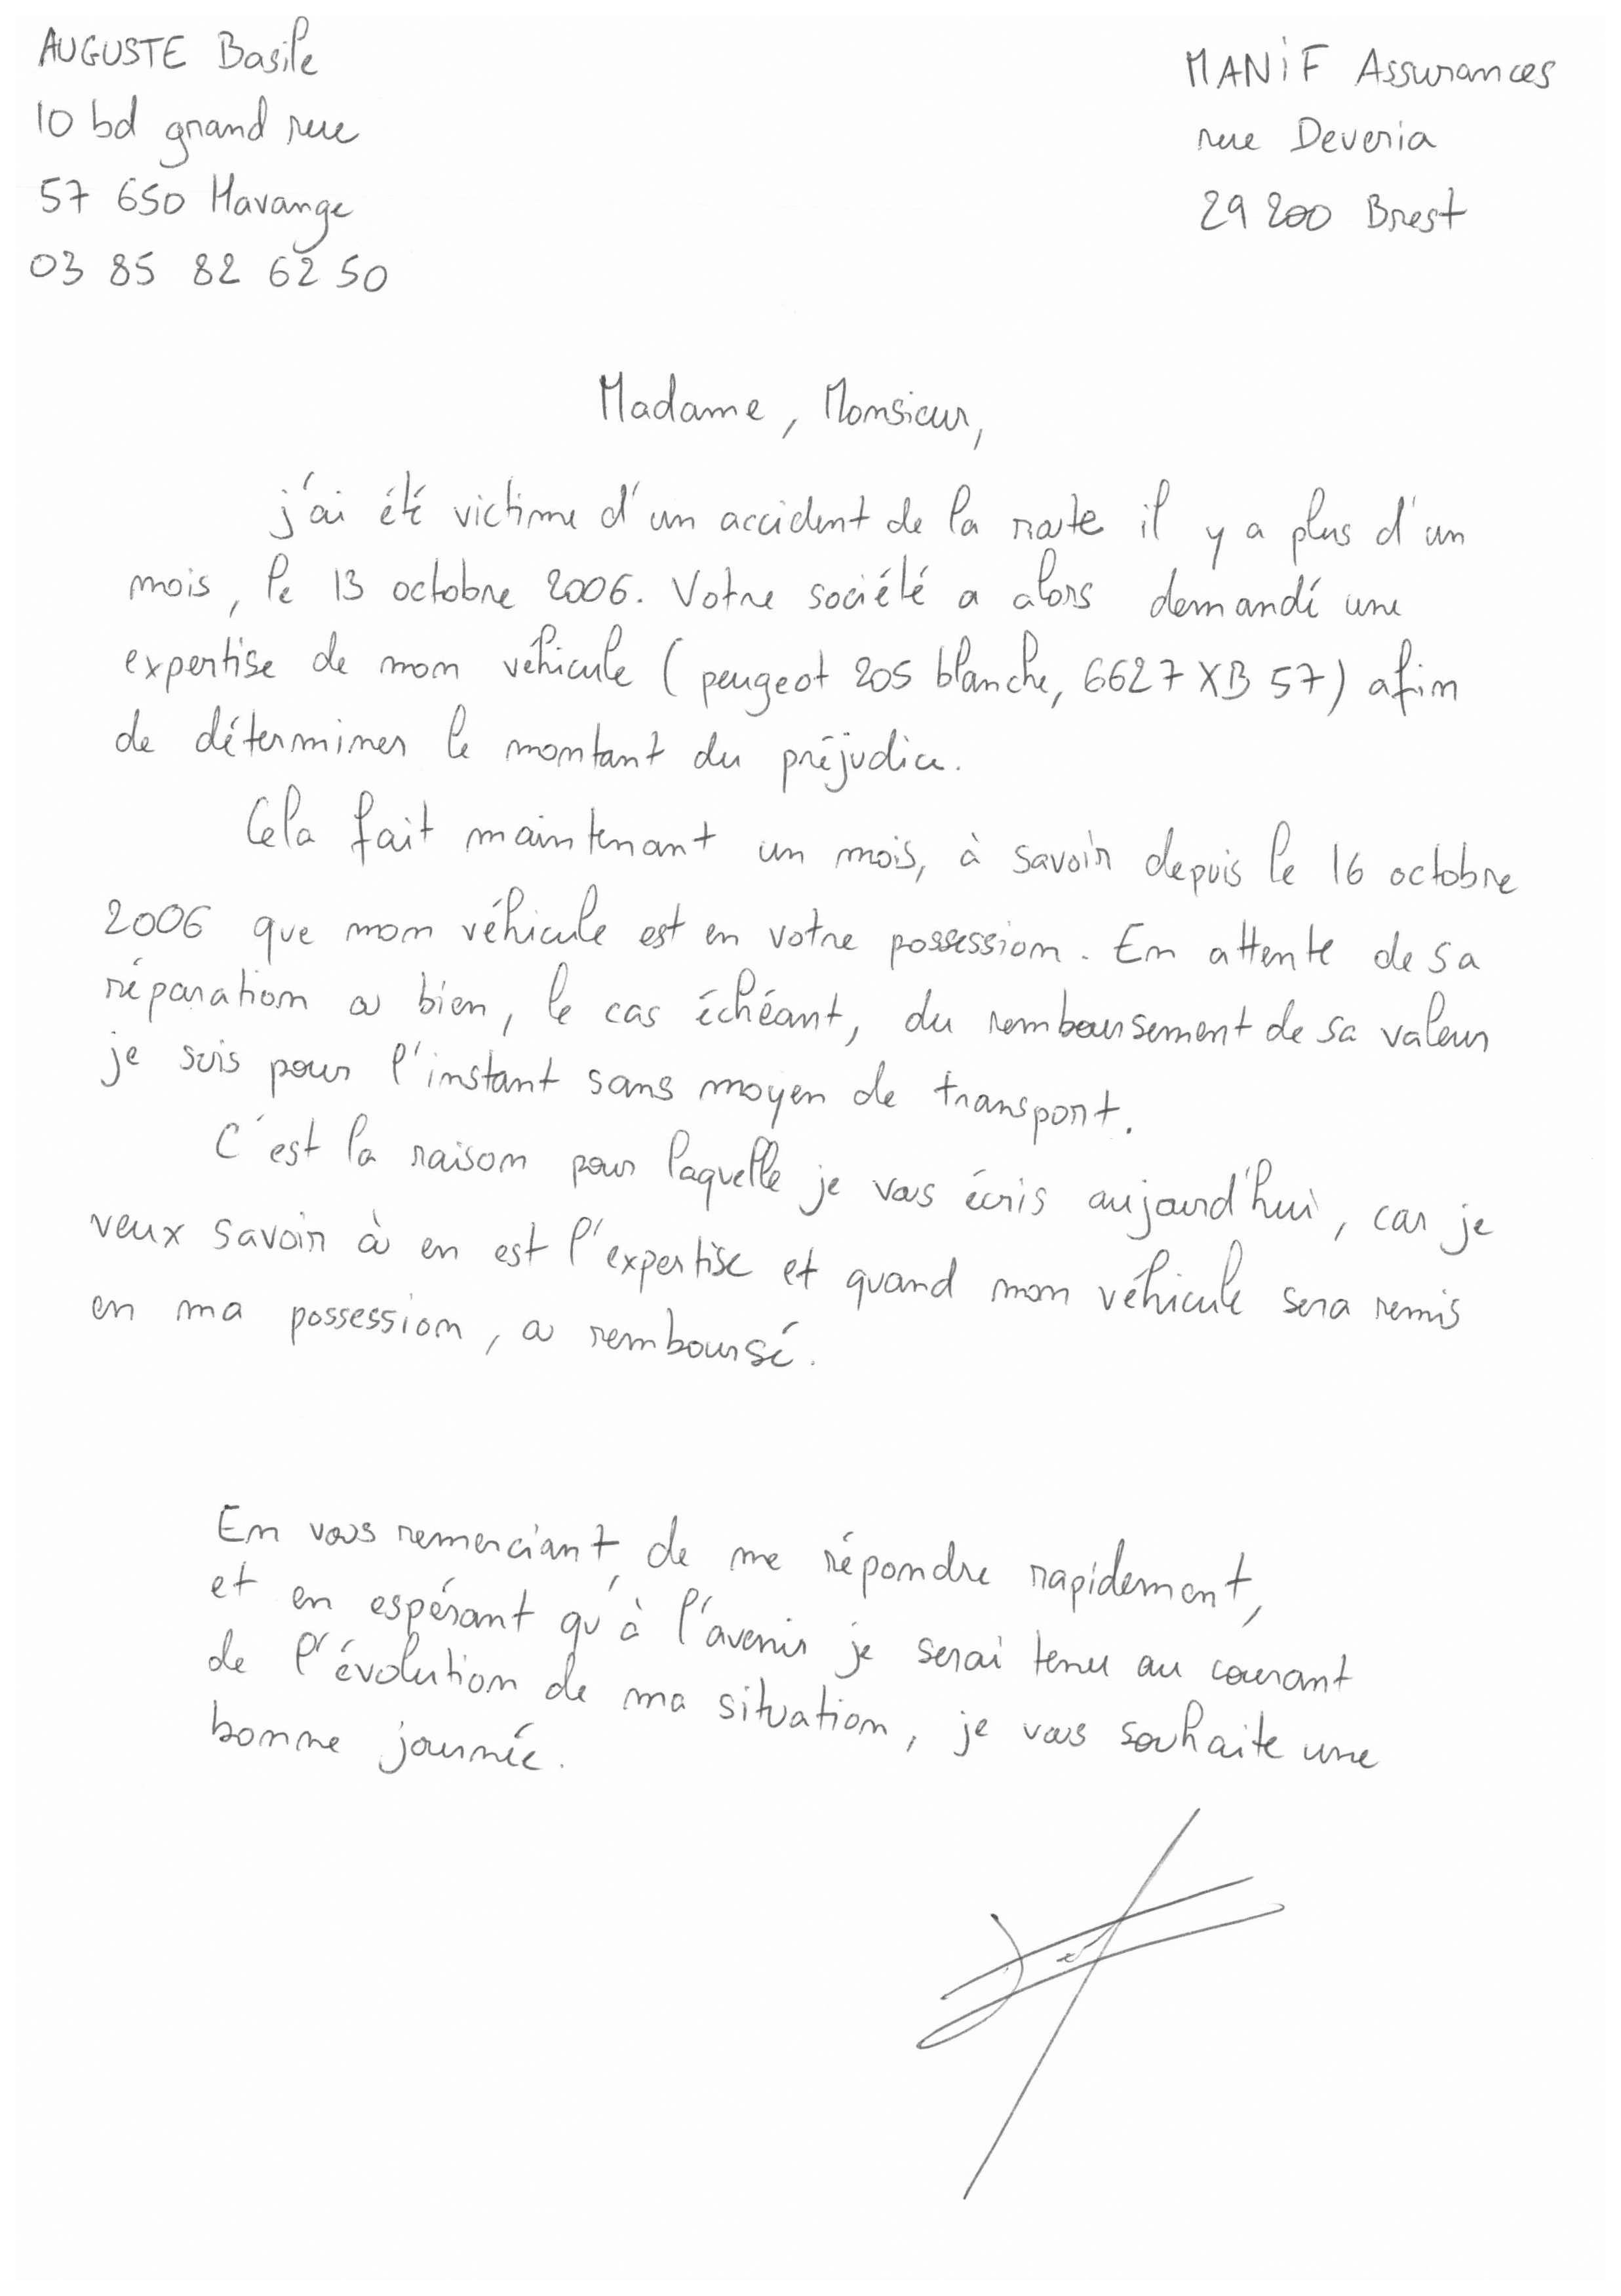 AUGUSTE Basile
10 bd grand rue
57 650 Havange
03 85 82 62 50
MANiF Assurances
rue Deveria
29 200 Brest
Madame, Monsieur,
j'ai été victime d'un accident de la route il y a plus d'un
mois, le 13 octobre 2006. Votre société a alors demandé une
expertise de mon véhicule (peugeot 205 blanche, 6627 XB 57) afin
de déterminer le montant du préjudice.
Cela fait maintenant un mois, à savoir depuis le 16 octobre
2006 que mon véhicule est en votre possession. En attente de sa
réparation ou bien, le cas échéant, du remboursement de sa valeur
je suis pour l'instant sans moyen de transport.
C'est la raison pour laquelle je vous écris aujourd'hui, car je
veux savoir où en est l'expertise et quand mon véhicule sera remis
en ma possession, ou remboursé.
En vous remerciant, de me répondre rapidement,
et en espérant qu'à l'avenir je serai tenu au courant
de l'évolution de ma situation, je vous souhaite une
bonne journée.